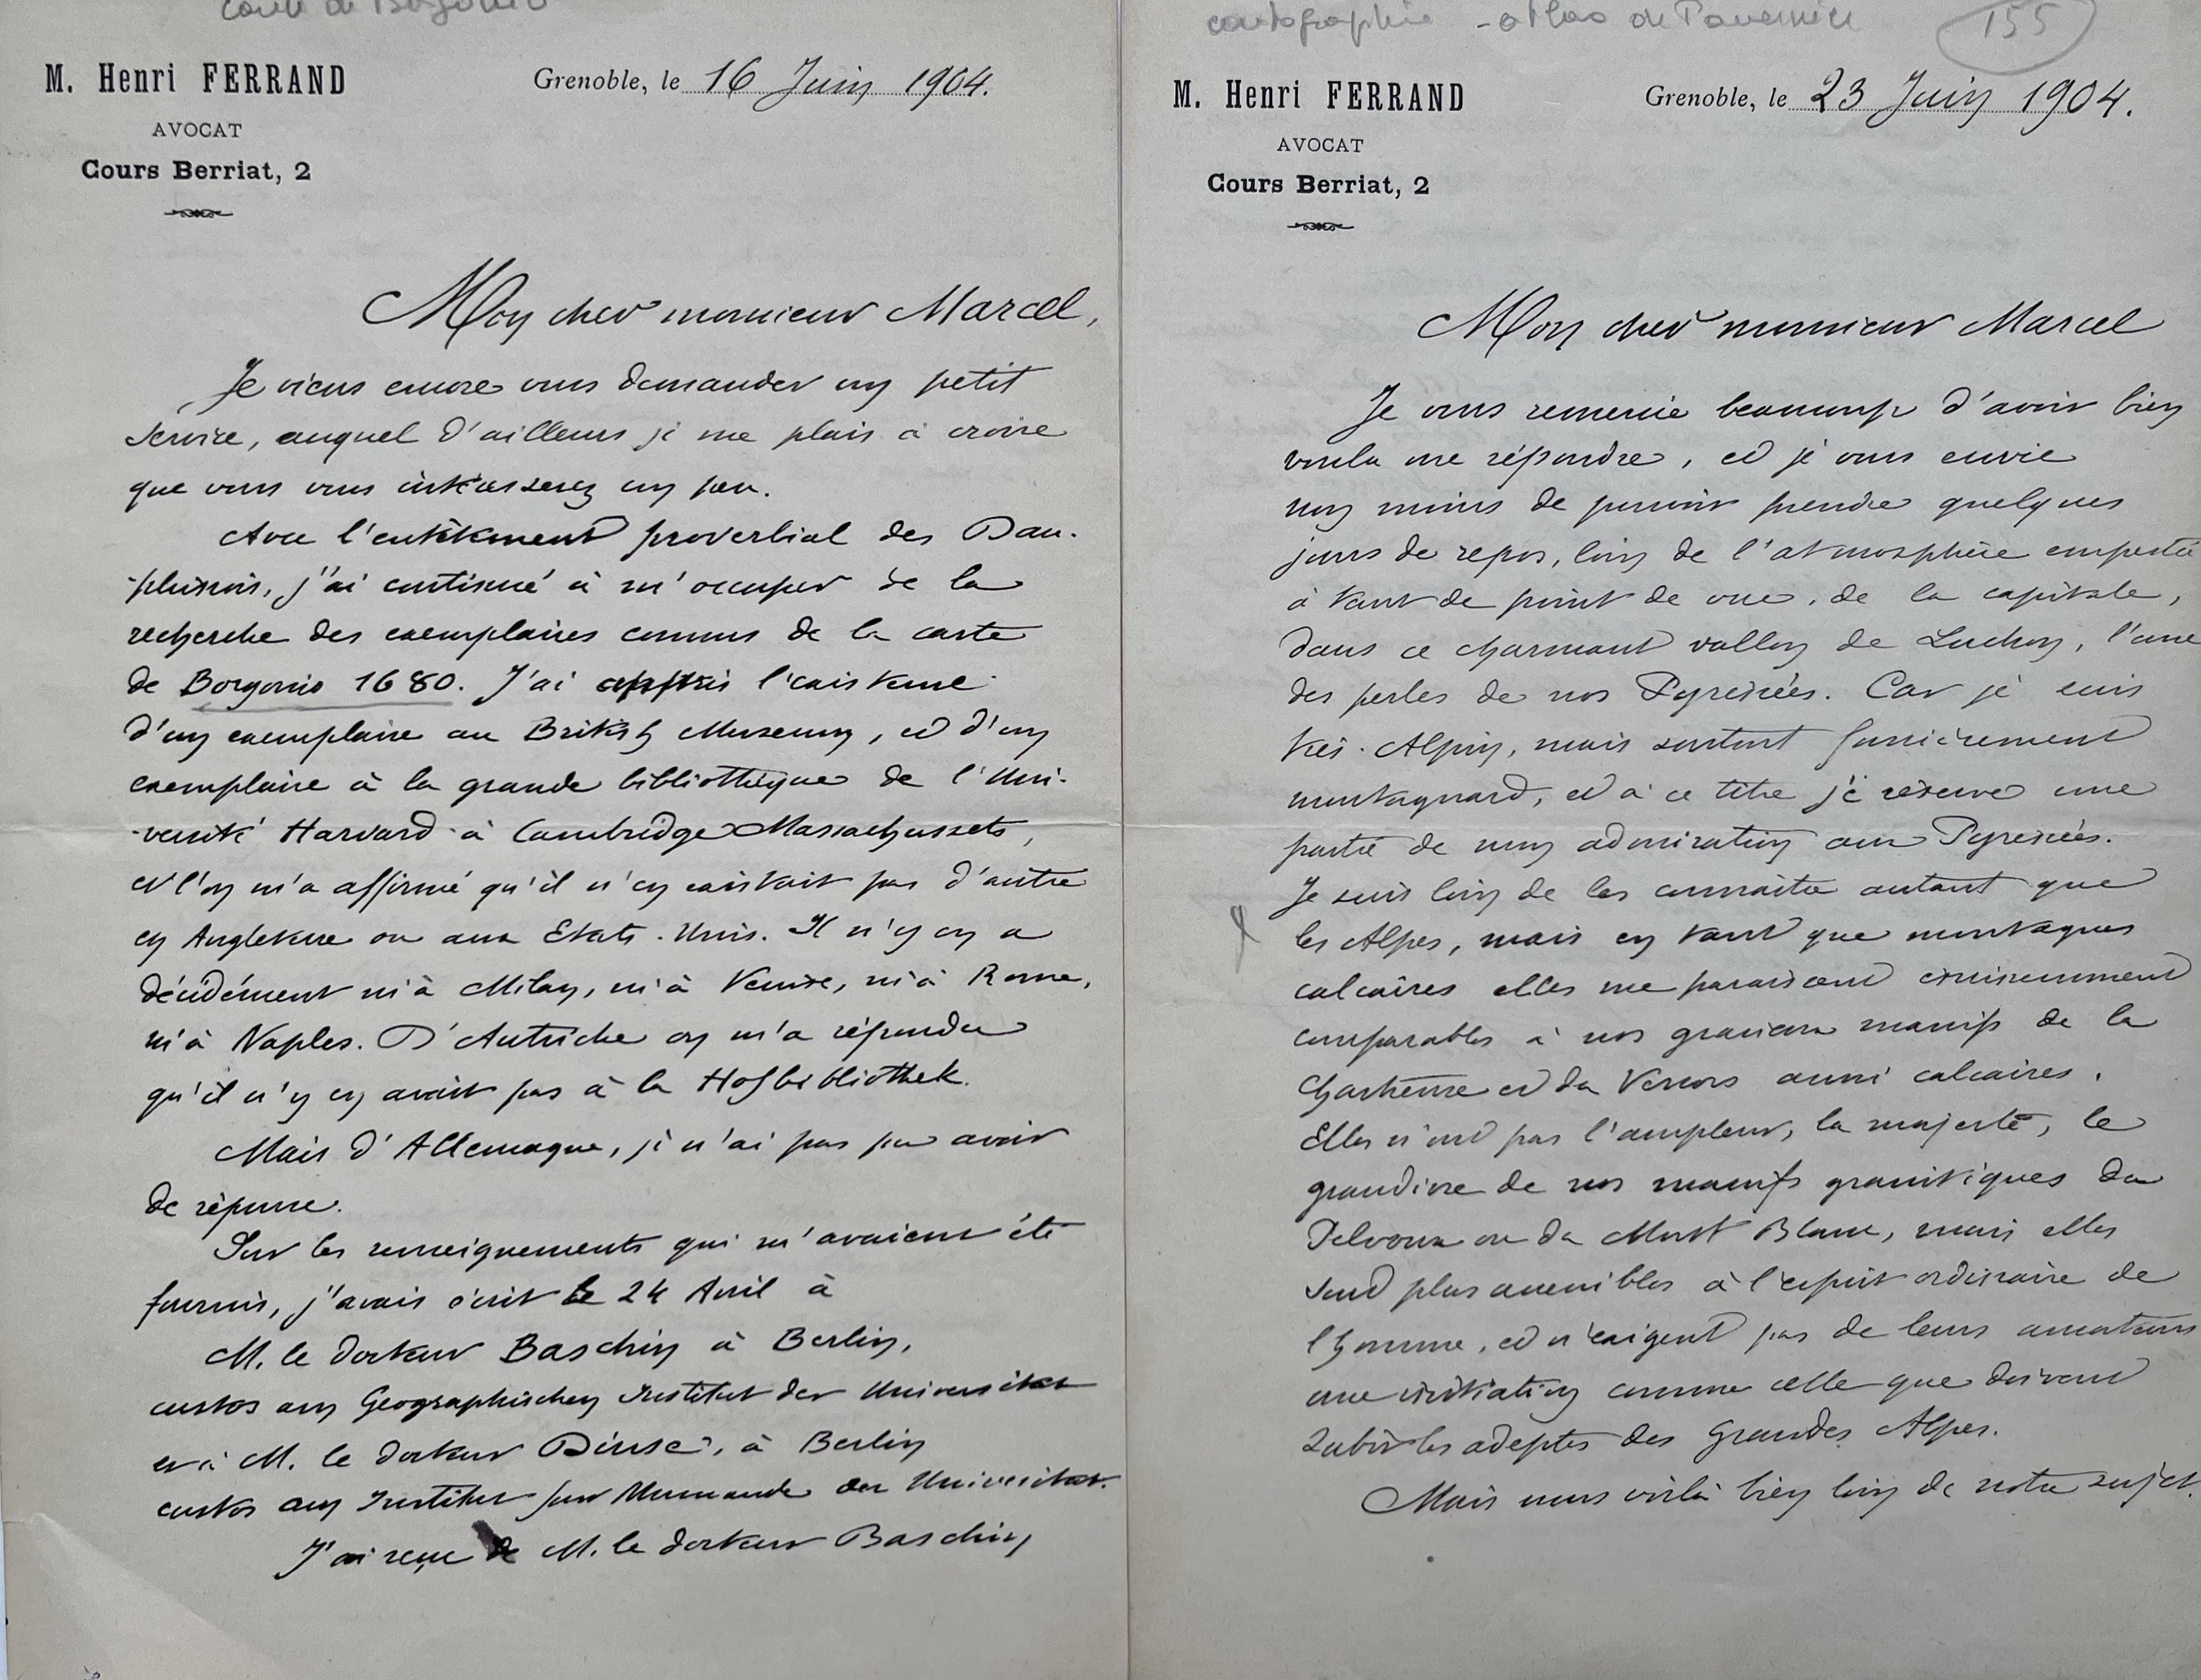 carte de Borgonio
M. Henri FERRAND
AVOCAT
Cours Berriat, 2
Grenoble, le 16 Juin 1904.
Mon cher monsieur Marcel,
Je viens encore vous demander un petit
service, auquel d'ailleurs je me plais à croire
que vous vous intéresserez un peu.
Avec l'entêtement proverbial des Dau-
-phinois, j'ai continué à m'occuper de la
recherche des exemplaires connus de la carte
de Borgonio 1680. J'ai appris l'existence
d'un exemplaire au British Museum, et d'un
exemplaire à la grande bibliothèque de l'Uni-
-versité Harvard à Cambridge Massachussets,
et l'on m'a affirmé qu'il n'en existait pas d'autre
en Angleterre ou aux Etats-Unis. Il n'y en a
décidément ni à Milan, ni à Venise, ni à Rome,
ni à Naples. D'Autriche on m'a répondu
qu'il n'y en avait pas à la Hofbibliothek.
Mais d'Allemagne, je n'ai pas pu avoir
de réponse.
Sur les renseignements qui m'avaient été
fournis, j'avais écrit le 24 Avril à
M. le docteur Baschin à Berlin,
custos am Geographischen Institut der Universitat
et à M. le docteur Dinse, à Berlin
custos am Institut fur Meereskunde der Universitat.
J'ai reçu de M. le docteur Baschin
cartographie - atlas de Tavernier
155
M. Henri FERRAND
AVOCAT
Cours Berriat, 2
Grenoble, le 23 Juin 1904.
Mon cher monsieur Marcel
Je vous remercie beaucoup d'avoir bien
voulu me répondre, et je vous envie
non moins de pouvoir prendre quelques
jours de repos, loin de l'atmosphère empestée
à tant de point de vue, de la capitale,
dans ce charmant vallon de Luchon, l'une
des perles de nos Pyrénées. Car je suis
très-Alpin, mais surtout foncièrement
montagnard, et à ce titre j'e réserve une
partie de mon admiration aux Pyrénées.
Je suis loin de les connaitre autant que
les Alpes, mais en tant que montagnes
calcaires elles me paraissent éminemment
comparables à nos gracieux massifs de la
Chartreuse et du Vercors aussi calcaires.
Elles n'ont pas l'ampleur, la majesté, le
grandiose de nos massifs granitiques du
Pelvoux ou du Mont Blanc, mais elles
sont plus accessibles à l'esprit ordinaire de
l'homme, et n'exigent pas de leurs amateurs
une initiation comme celle que doivent
subir les adeptes des Grandes Alpes.
Mais nous voilà bien loin de notre sujet.